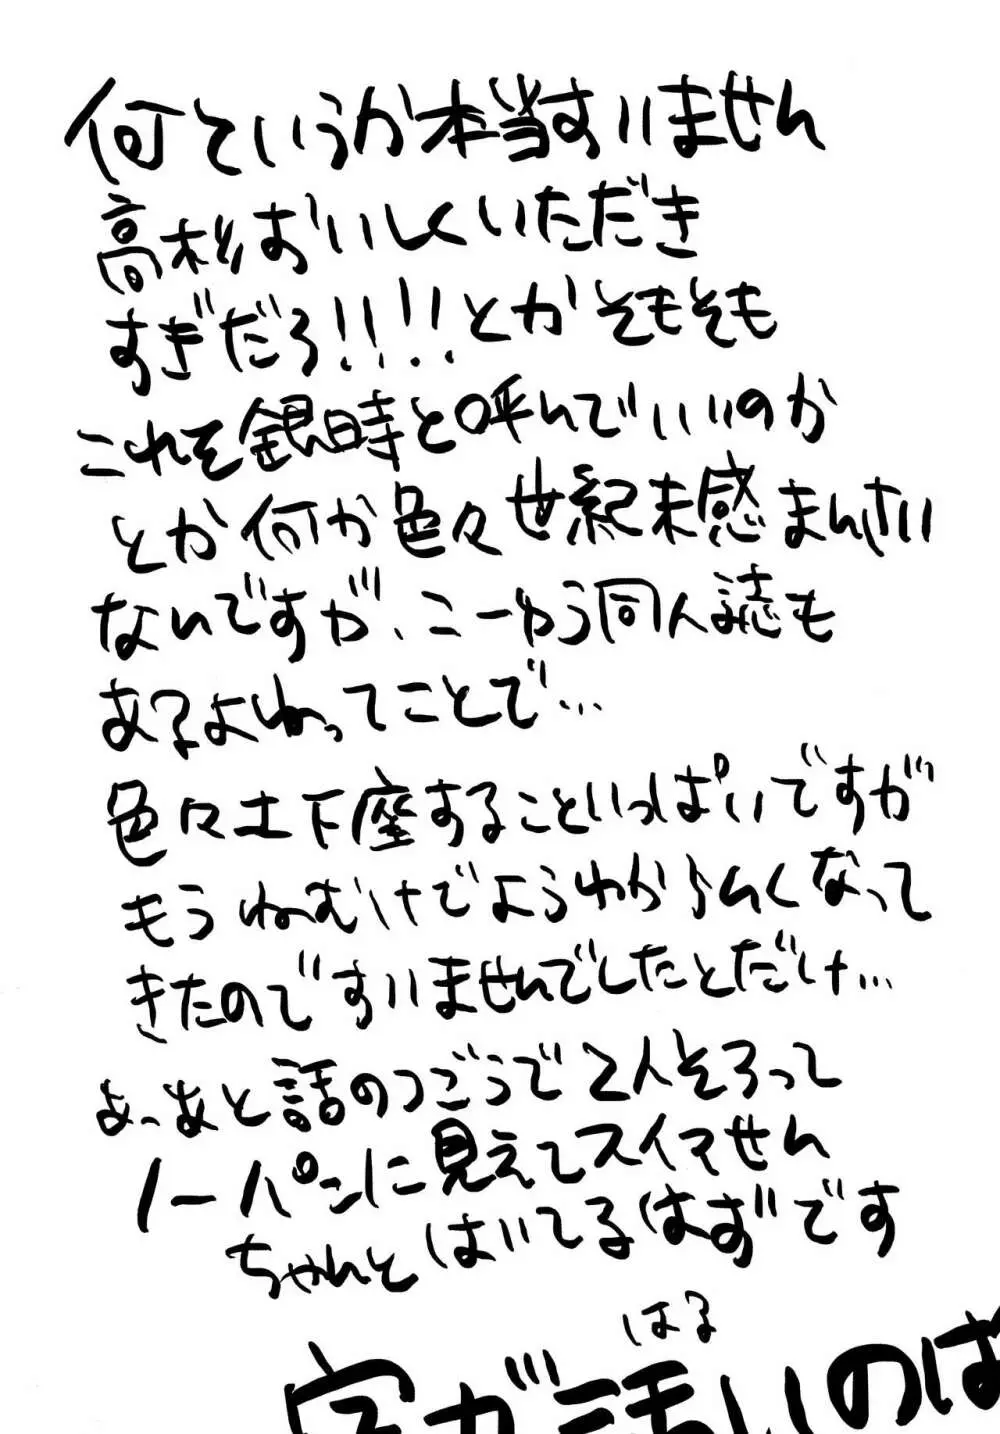 何というか本当すいません
高杉おいしくいただき
すぎだろ!!!!とかそもそも
これを銀時と呼んでいいのか
とか何か色々世紀末感まんさい
ないですが、こーゆう同人誌も
あるよねってことで…
色々土下座することいっぱいですが
もうねむけでようわからんくなって
きたのですいませんでしたとだけ…
あっあと話のつごうで2人そろって
ノーパンに見えてスイマせん
ちゃんとはいてるはずです
はる
字が汚いのは